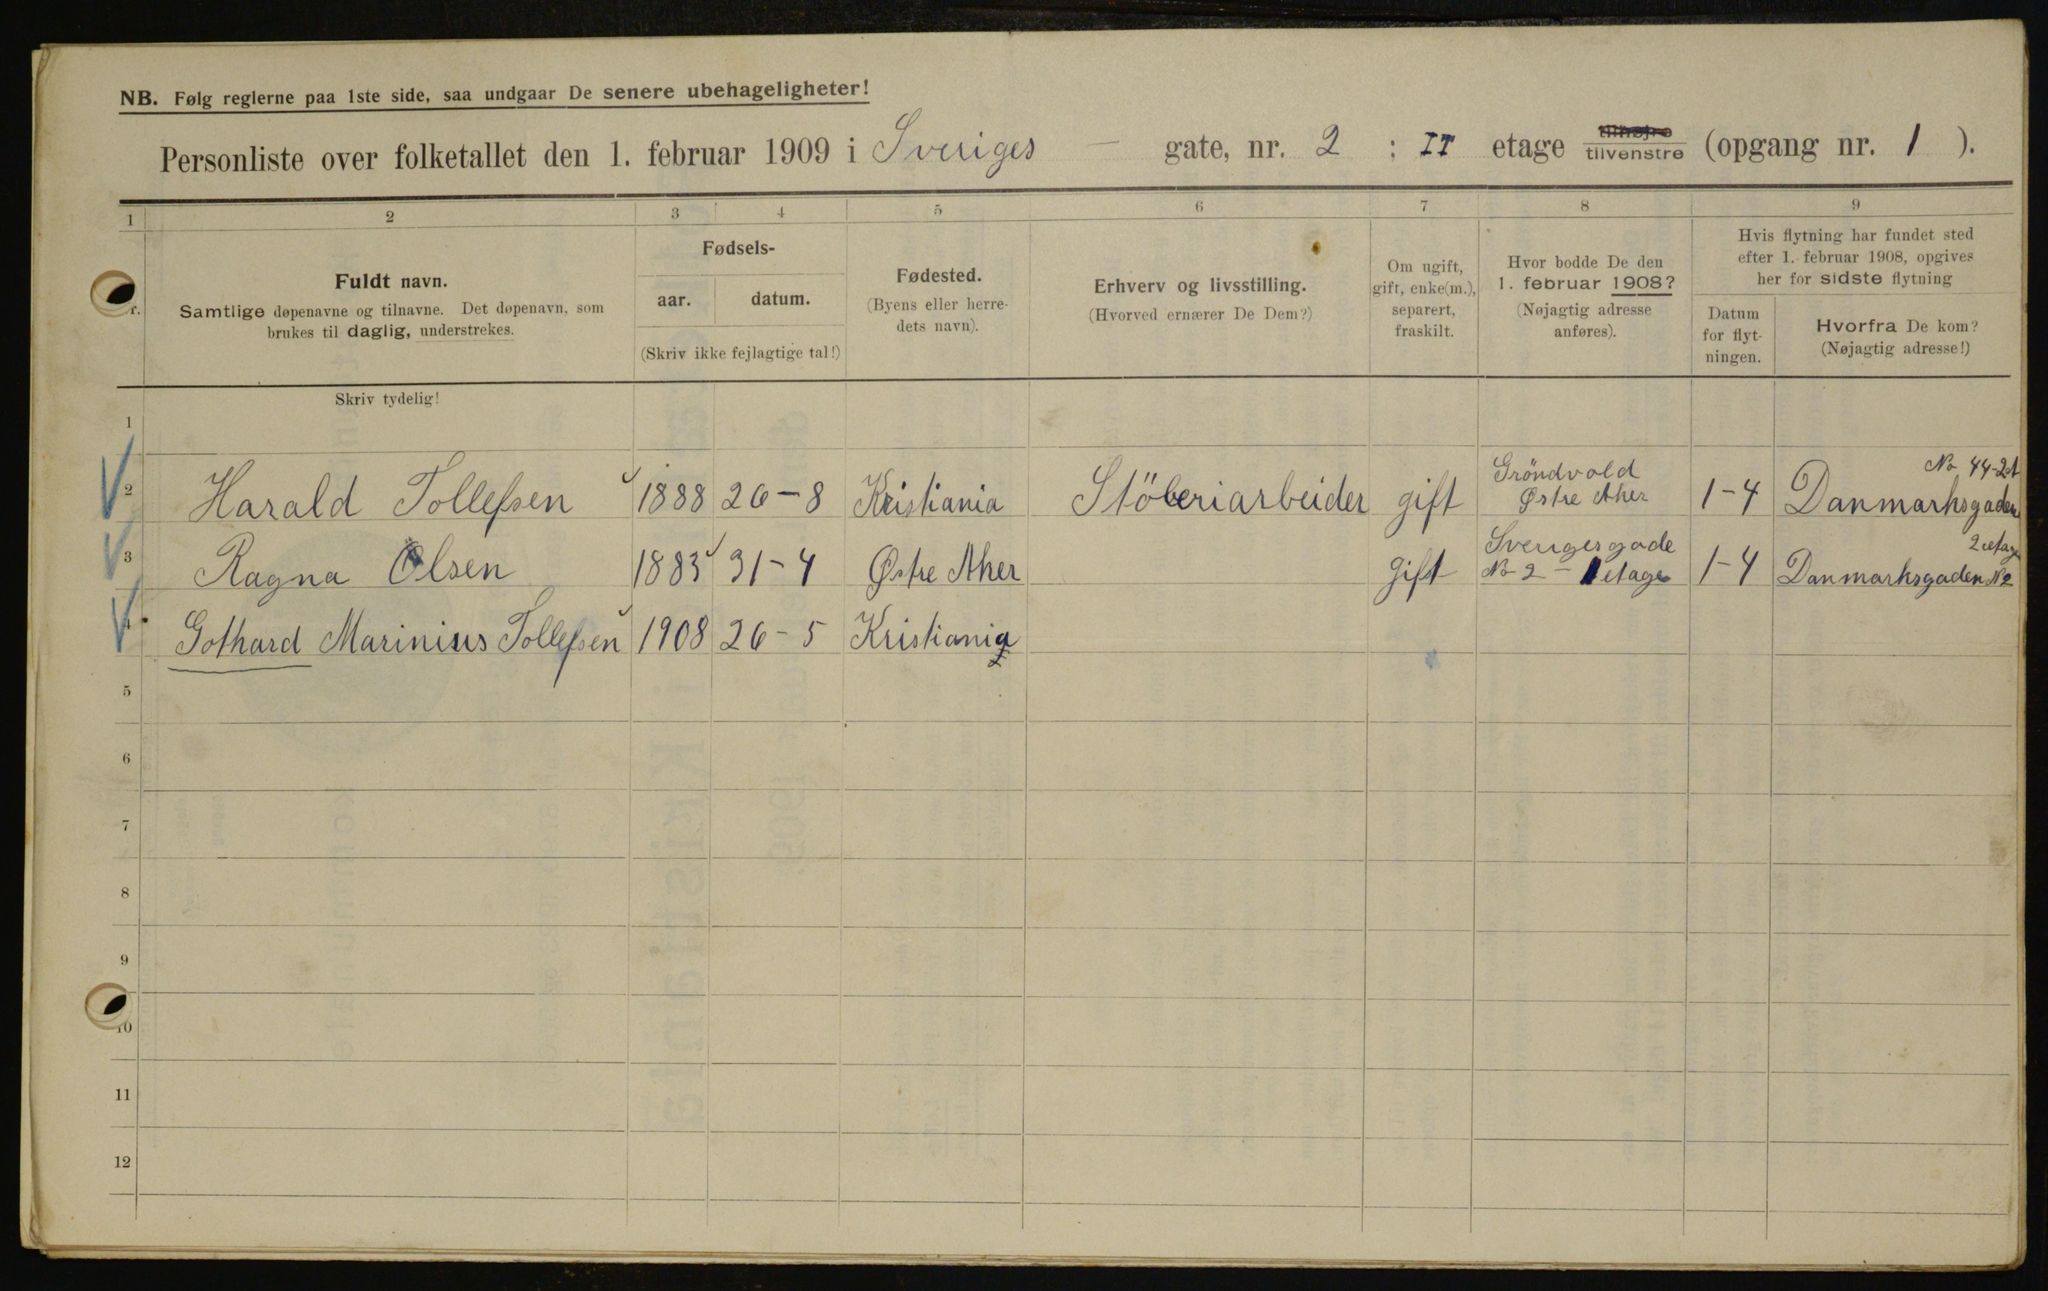 NB. Følg reglerne paa 1ste side, saa undgaar De senere ubehageligheter!
Personliste over folketallet den 1. februar 1909 i Sveriges — gate, nr. 2 : II etage tilhøjre tilvenstre (opgang nr. 1 ).
1 2 3 4 5 6 7 8 9
Nr.
Fuldt navn.
Samtlige døpenavne og tilnavne. Det døpenavn, som
brukes til daglig, understrekes.
Fødsels-
aar. datum.
(Skriv ikke fejlagtige tal!)
Fødested.
(Byens eller herre-
dets navn).
Erhverv og livsstilling.
(Hvorved ernærer De Dem?)
Om ugift,
gift, enke(m.),
separert,
fraskilt.
Hvor bodde De den
1. februar 1908?
(Nøjagtig adresse
anføres).
Hvis flytning har fundet sted
efter 1. februar 1908, opgives
her for sidste flytning
Datum
for flyt-
ningen.
Hvorfra De kom?
(Nøjagtig adresse!)
Skriv tydelig!
1
2 Harald Tollefsen 1888 26-8 Kristiania Stöberiarbeider gift Gröndvold Østre Aker 1-4 No 44-2et Danmarksgaden
3 Ragna Olsen 1883 31-4 Østre Aker gift Sverigesgade No 2 - 1 etage 1-4 2 etage Danmarksgaden No 2
4 Gothard Marinius Tollefsen 1908 26-5 Kristiania
5
6
7
8
9
10
11
12